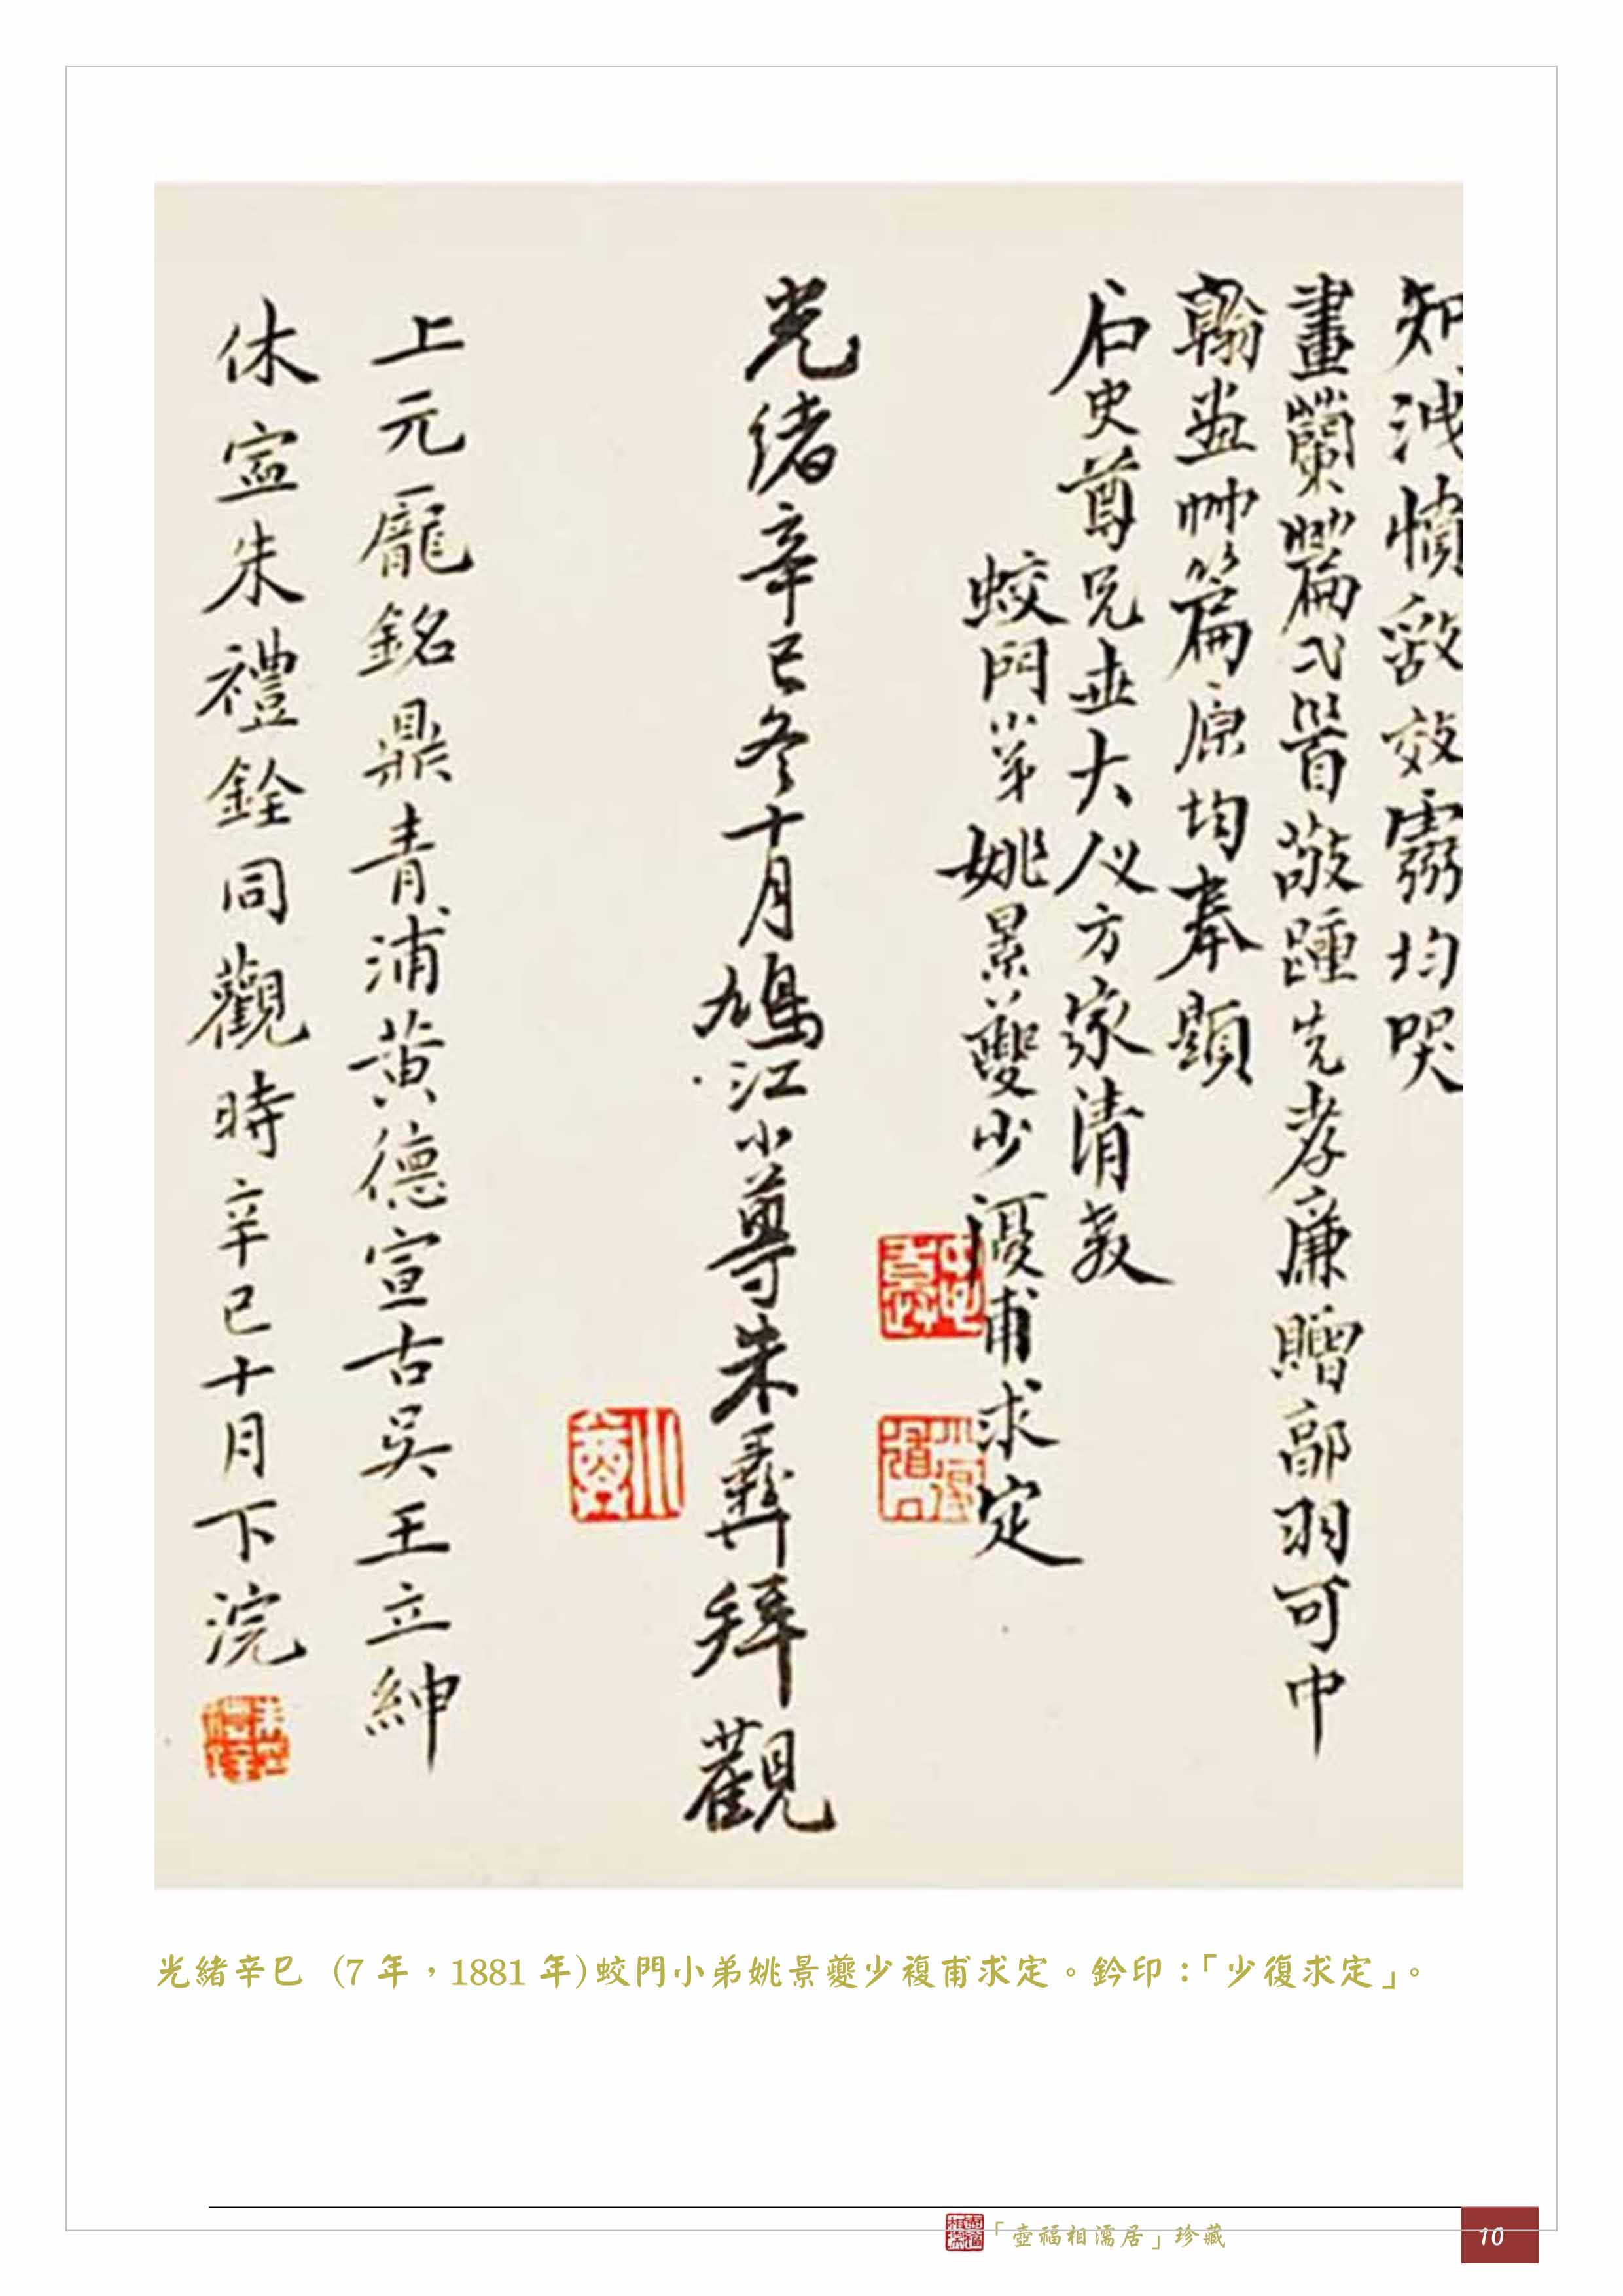 知洩憤敔效雺均哭
畫蘭𦫶篇弍首敬踵先孝廉贈鄗羽可中
翰畫艸篇原均奉題
石史尊兄並大人方家清教
蛟門小弟姚景夔少復甫求定
光緒辛巳冬十月鳩江小尊朱彝拜觀
上元龐銘鼎青浦黃德宣古吳王立紳
休寍朱禮銓同觀時辛巳十月下浣
光緒辛巳 (7 年，1881 年)蛟門小弟姚景夔少複甫求定。鈐印：「少復求定」。
「壺福相濡居」珍藏
10